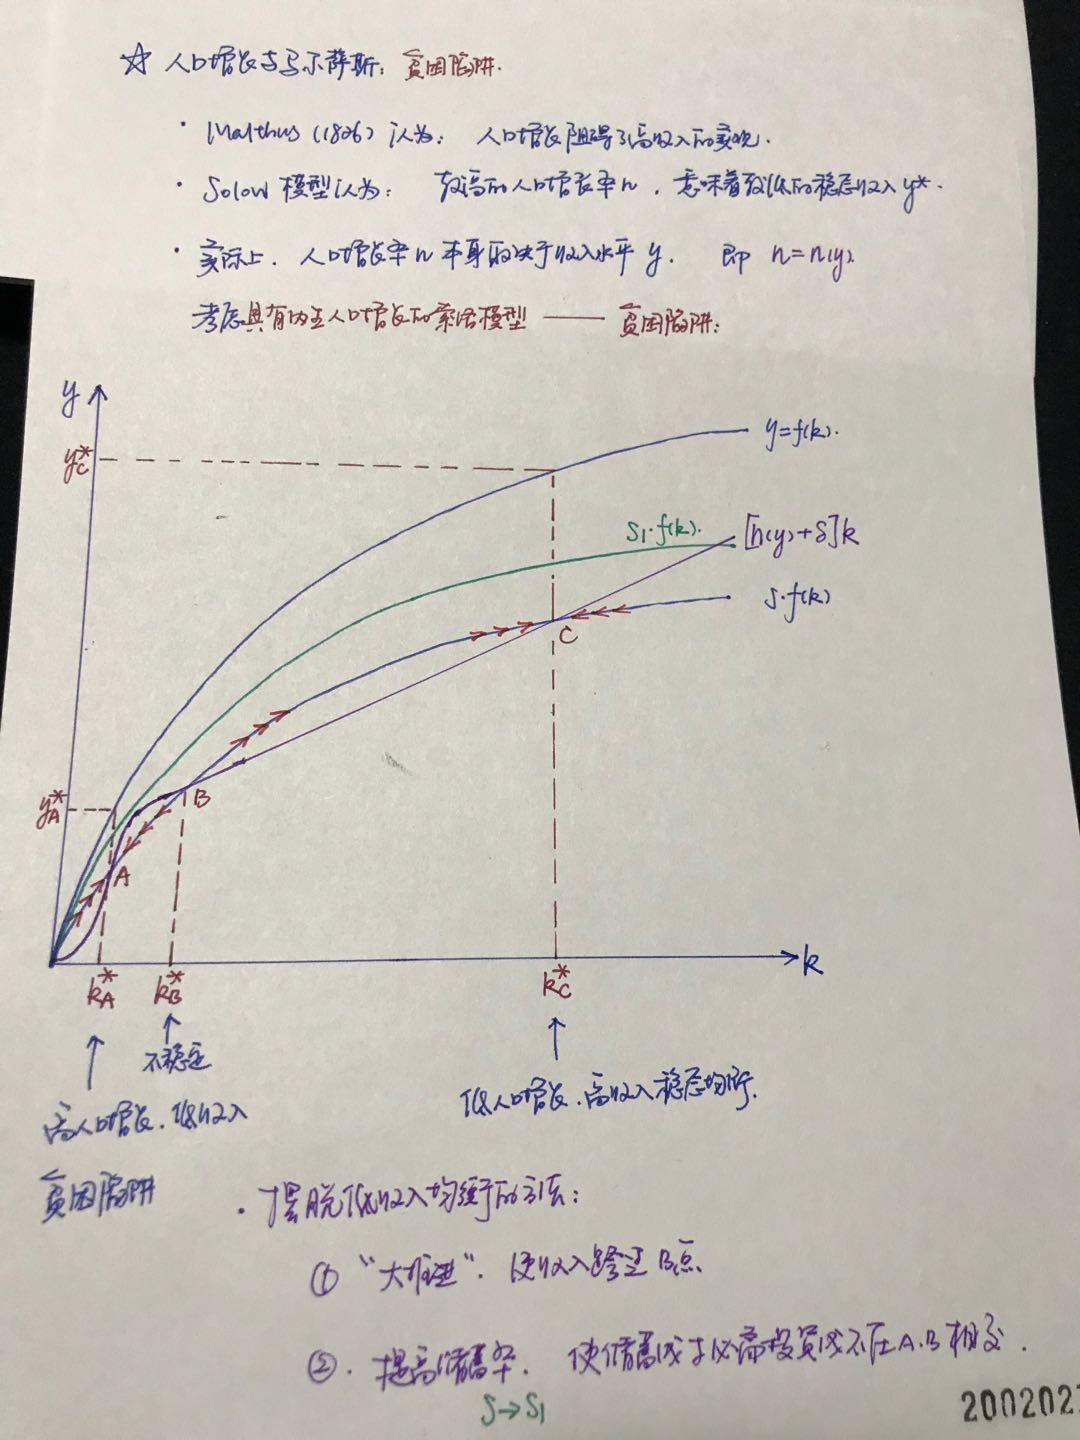 ☆ 人口增长与马尔萨斯：贫困陷阱.
· Malthus (1826) 认为： 人口增长阻碍了高收入的实现.
· Solow 模型认为： 较高的人口增长率n，意味着较低的稳态收入y*.
· 实际上，人口增长率n本身取决于收入水平y. 即 n=n(y).
考虑具有内生人口增长的索洛模型 —— 贫困陷阱：
y
y=f(k).
yC*
S1·f(k).
[n(y)+δ]k
s·f(k)
C
yA*
B
A
k
kA*
kB*
kC*
不稳定
低人口增长.高收入稳态均衡.
高人口增长.低收入
贫困陷阱
· 摆脱低收入均衡的方法：
① “大推进”. 使收入跨过B点
②. 提高储蓄率. 使储蓄线与必需投资线不在A.B相交.
S→S1
2002027